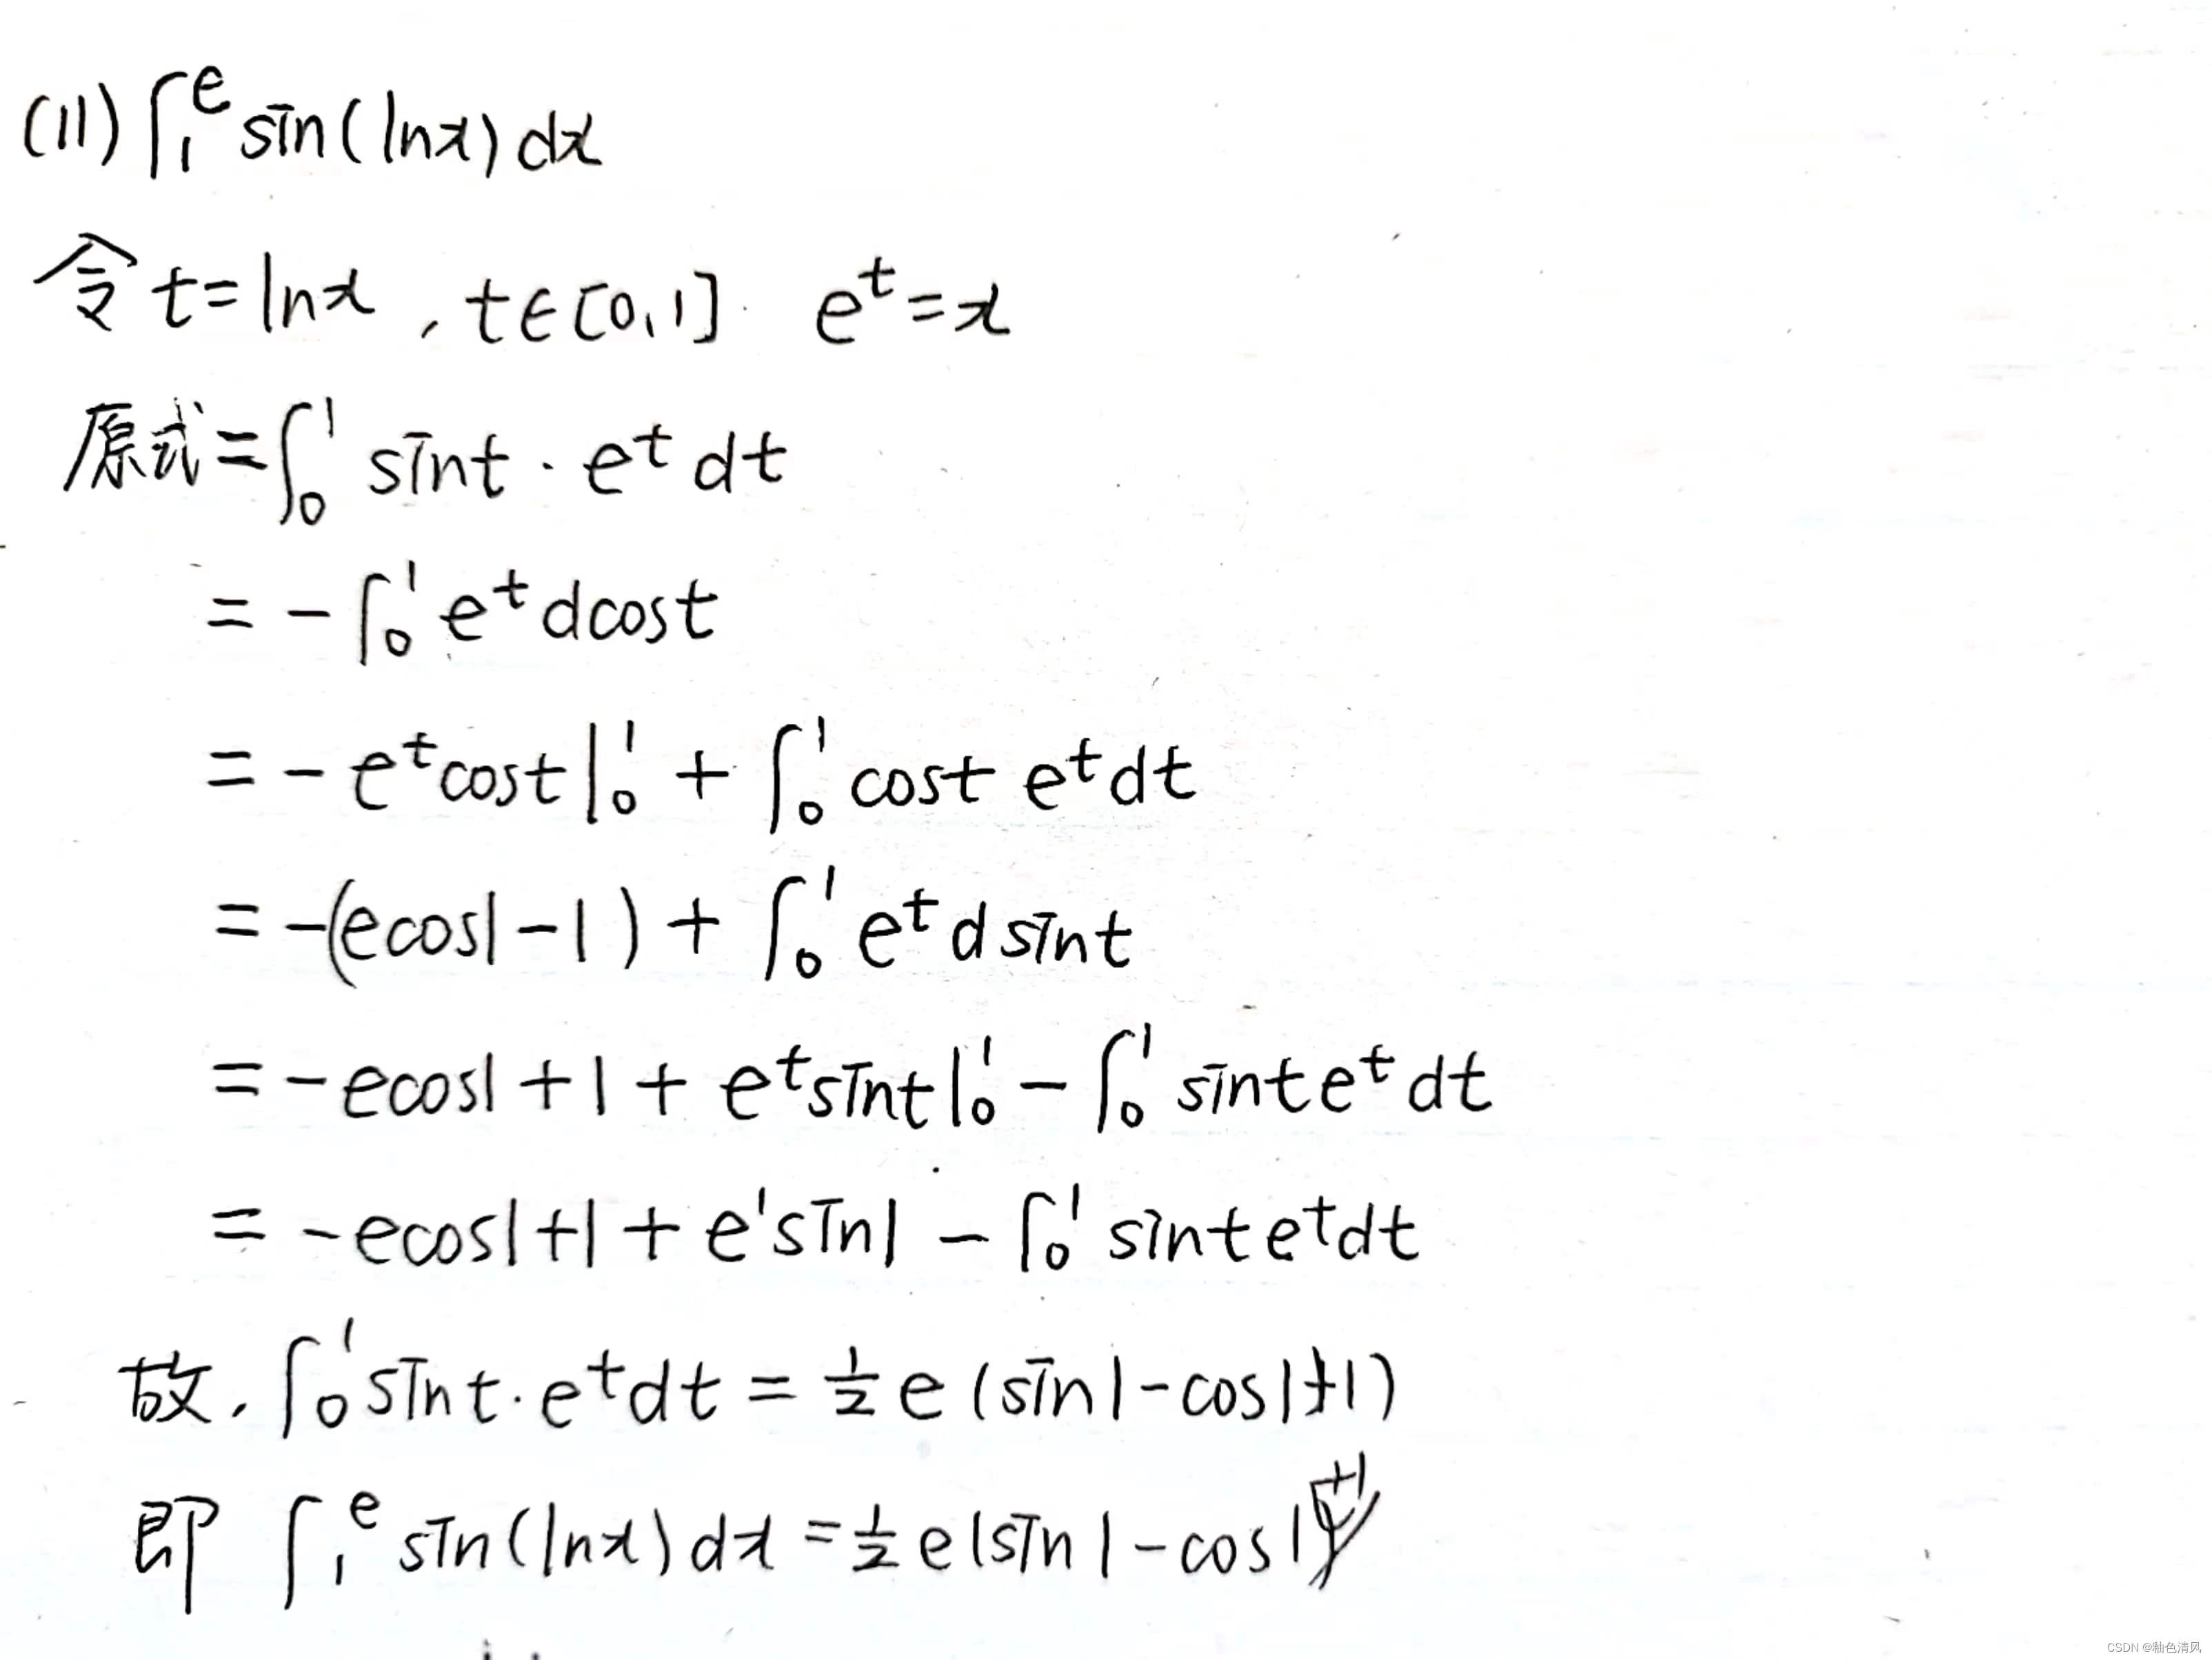 (11) ∫₁ᵉ sin(lnx)dx
令 t=lnx , t∈[0,1] eᵗ=x
原式=∫₀¹ sint · eᵗ dt
= -∫₀¹ eᵗ dcost
= -eᵗcost|₀¹ + ∫₀¹ cost eᵗdt
= -(ecos1-1) + ∫₀¹ eᵗ dsint
= -ecos1+1+ eᵗsint|₀¹ - ∫₀¹ sinteᵗ dt
= -ecos1+1+e¹sin1 - ∫₀¹ sinteᵗdt
故, ∫₀¹ sint·eᵗdt = ½e(sin1-cos1+1)
即 ∫₁ᵉ sin(lnx)dx = ½e(sin1-cos1
CSDN @釉色清风